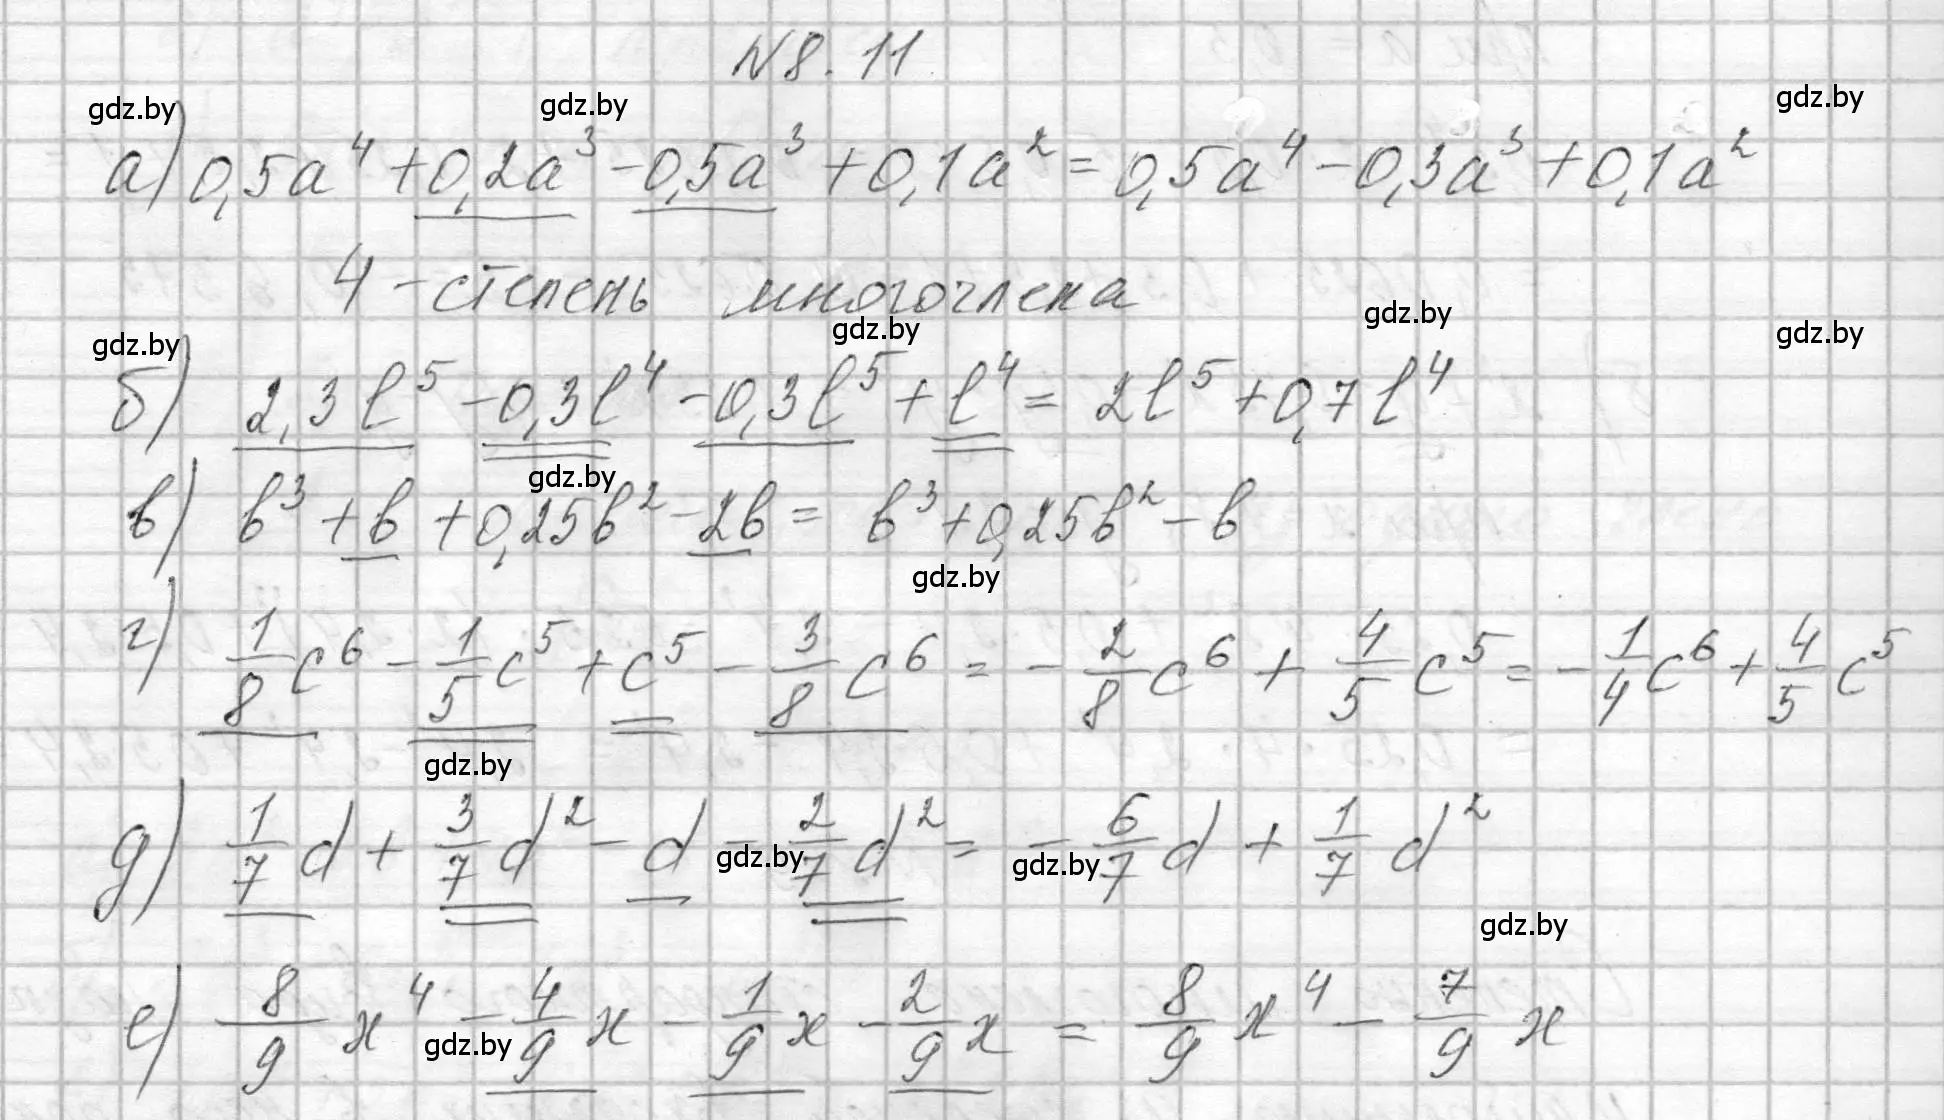 N8.11
gdz.by gdz.by gdz.by
а) 0,5a⁴ + 0,2a³ - 0,5a³ + 0,1a² = 0,5a⁴ - 0,3a³ + 0,1a²
4 - степень многочлена
gdz.by gdz.by gdz.by gdz.by
б) 2,3l⁵ - 0,3l⁴ - 0,3l⁵ + l⁴ = 2l⁵ + 0,7l⁴
gdz.by
в) b³ + b + 0,25b² - 2b = b³ + 0,25b² - b
gdz.by
г) 1/8 c⁶ - 1/5 c⁵ + c⁵ - 3/8 c⁶ = - 2/8 c⁶ + 4/5 c⁵ = - 1/4 c⁶ + 4/5 c⁵
gdz.by
д) 1/7 d + 3/7 d² - d - 2/7 d² = - 6/7 d + 1/7 d²
gdz.by gdz.by
gdz.by
е) 8/9 x⁴ - 4/9 x - 1/9 x - 2/9 x = 8/9 x⁴ - 7/9 x
gdz.by